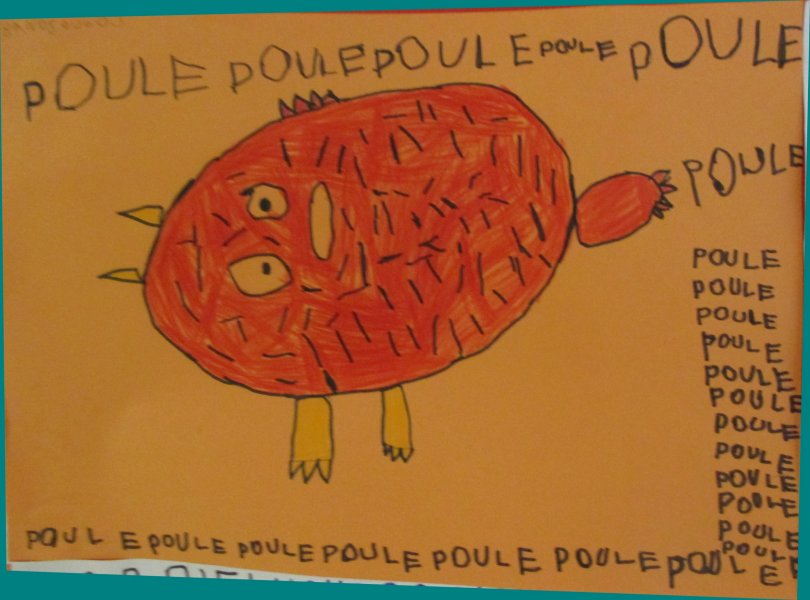 POULE POULE POULE POULE POULE
POULE
POULE
POULE
POULE
POULE
POULE
POULE
POULE
POULE
POULE
POULE
POULE
POULE
POULE POULE POULE POULE POULE POULE POULE